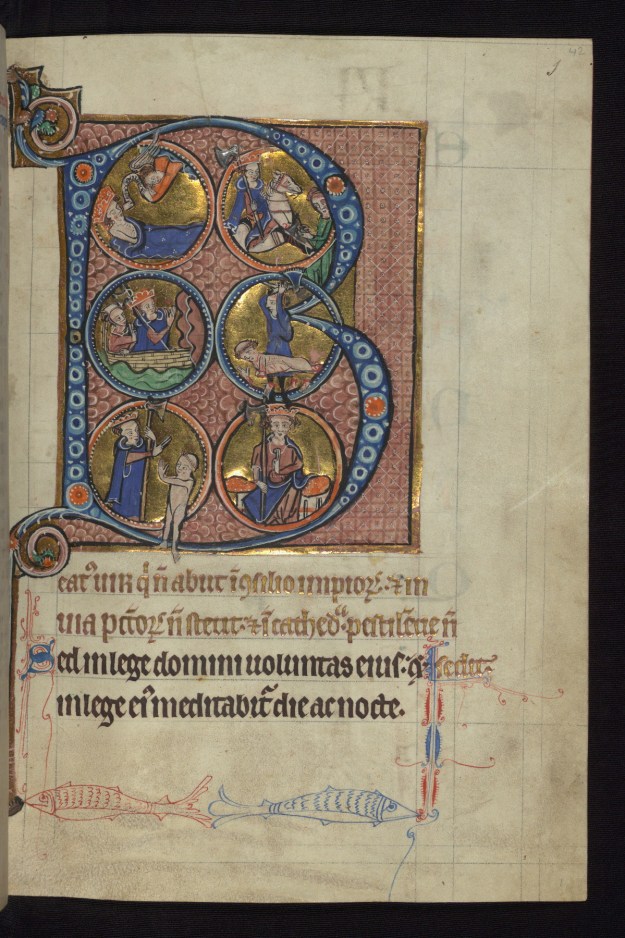 42
B
eatꝰ uir q̇ n̄ abiit ı̄ ꝯsilio impioꝝ· ⁊ in
uia pctōꝝ n̄ stetit· ⁊ ı̄ cathedᵃ pestilētie n̄
Sed in lege domini uoluntas eius· ⁊ sedit·
in lege eiꝰ meditabit̄ die ac nocte.